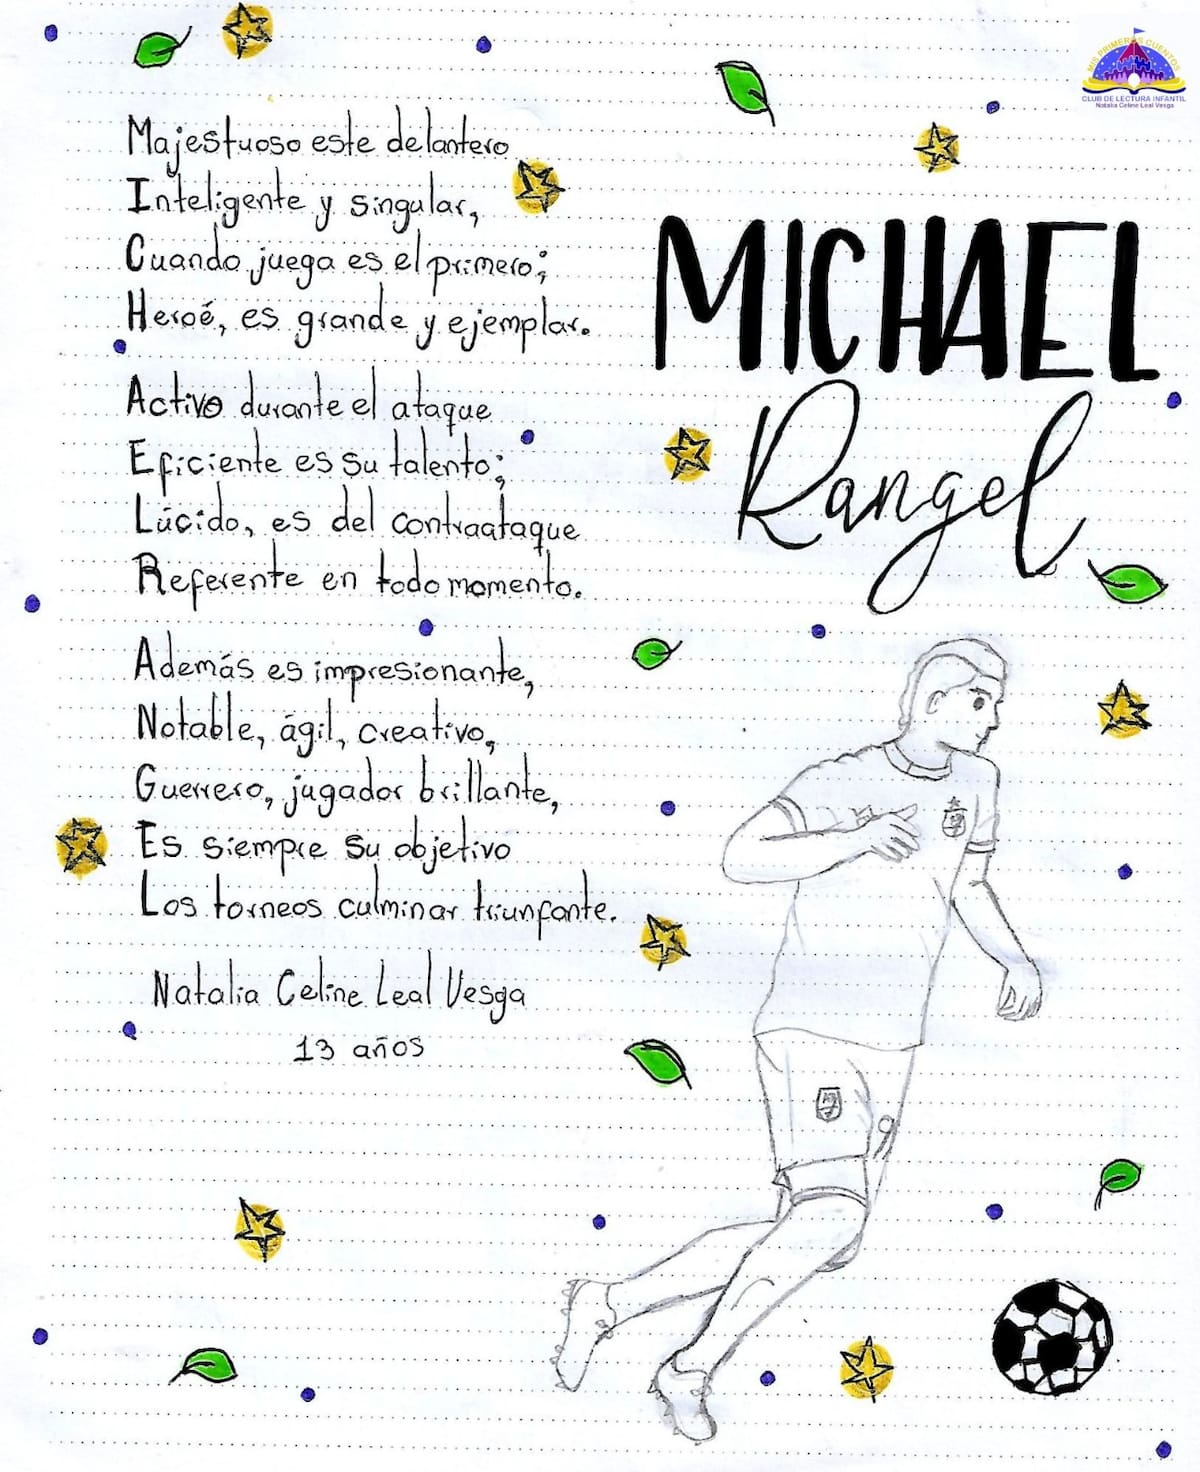 MIS PRIMEROS CUENTOS
CLUB DE LECTURA INFANTIL
Natalia Celine Leal Vesga
Majestuoso este delantero
Inteligente y singular,
Cuando juega es el primero;
Heroé, es grande y ejemplar.
MICHAEL
Rangel
Activo durante el ataque
Eficiente es su talento;
Lúcido, es del contraataque
Referente en todo momento.
Además es impresionante,
Notable, ágil, creativo,
Guerrero, jugador brillante,
Es siempre su objetivo
Los torneos culminar triunfante.
Natalia Celine Leal Vesga
13 años
9